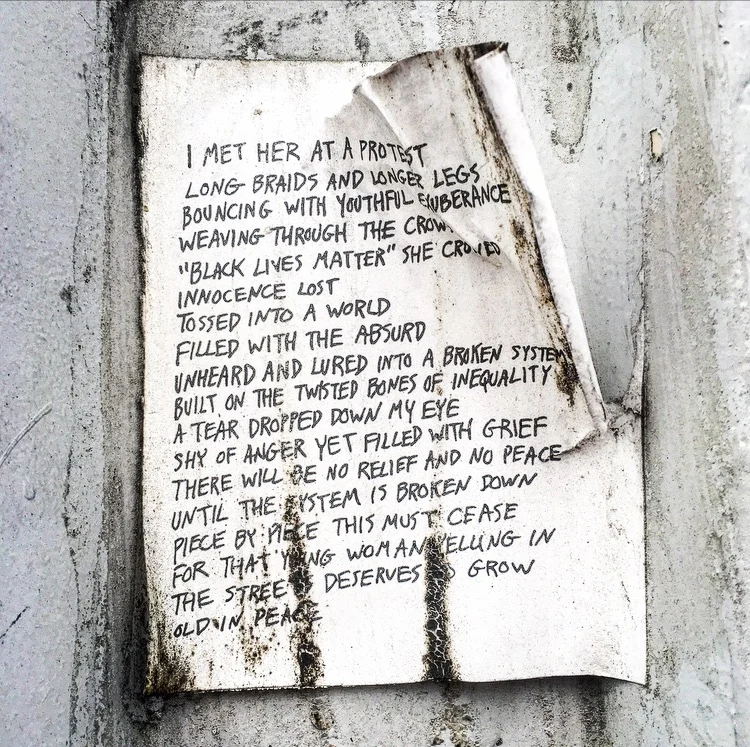 I MET HER AT A PROTEST
LONG BRAIDS AND LONGER LEGS
BOUNCING WITH YOUTHFUL EXUBERANCE
WEAVING THROUGH THE CROWD
"BLACK LIVES MATTER" SHE
INNOCENCE LOST
TOSSED INTO A WORLD
FILLED WITH THE ABSURD
UNHEARD AND LURED INTO A BROKEN SYSTEM
BUILT ON THE TWISTED BONES OF INEQUALITY
A TEAR DROPPED DOWN MY EYE
SHY OF ANGER YET FILLED WITH GRIEF
THERE WILL BE NO RELIEF AND NO PEACE
UNTIL THE SYSTEM IS BROKEN DOWN
PIECE BY PIECE THIS MUST CEASE
FOR THAT YOUNG WOMAN YELLING IN
THE STREET DESERVES TO GROW
OLD IN PEACE